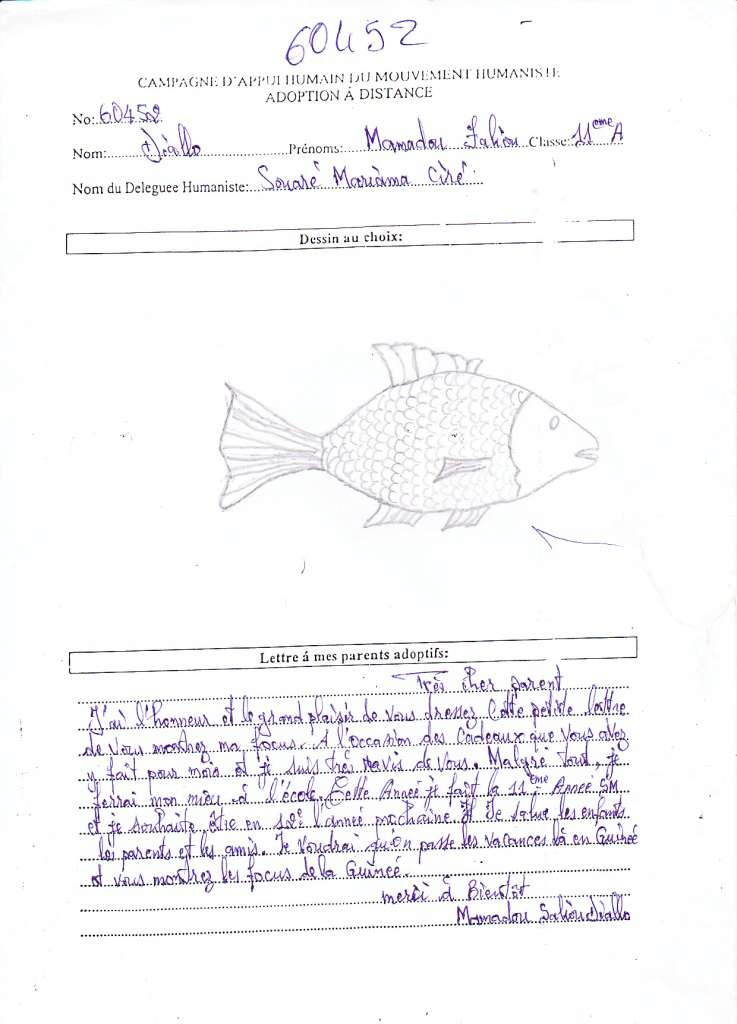 60452
CAMPAGNE D'APPUI HUMAIN DU MOUVEMENT HUMANISTE
ADOPTION Á DISTANCE
No: 60452
Nom: Diallo Prénoms: Mamadou Saliou Classe: 11eme A
Nom du Deleguee Humaniste: Souaré Mariama Ciré
Dessin au choix:
Lettre á mes parents adoptifs:
Très cher parent
J'ai l'honneur et le grand plaisir de vous dressez Cette petite lettre
de vous montrez ma focus. A l'occasion des Cadeaux que vous avez
y fait pour mois et je suis très ravis de vous. Malgré tout, je
ferrai mon mieu à l'école. Cette Année je fait la 11ème Année SM
et je souhaite être en 12e l'année prochaine. Je salue les enfants
les parents et les amis. Je voudrai qu'on passe les vacances là en Guinée
et vous montrez les focus de la Guineé.
merci à Bientôt
Mamadou Saliou Diallo